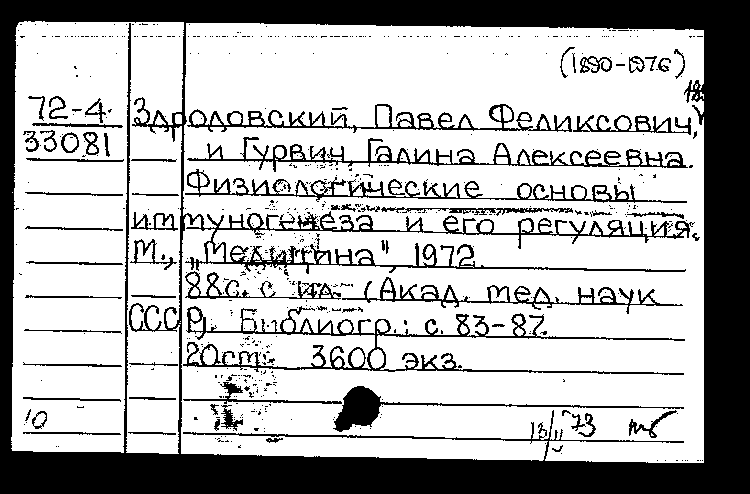 (1890-1976)
72-4 Здродовский, Павел Феликсович,
33081 и Гурвич, Галина Алексеевна.
Физиологические основы
иммуногенеза и его регуляция.
М., „Медицина", 1972.
88с. с ил. (Акад. мед. наук
СССР). Библиогр.: с. 83-87.
20см. 3600 экз.
10 13/II 73